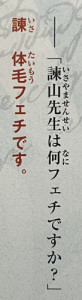 ――「諫山先生は何フェチですか？」
諫　体毛フェチです。